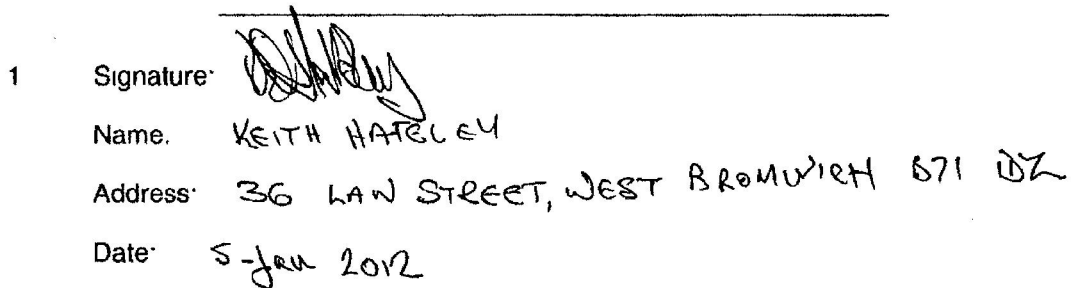 1 Signature·
Name. KEITH HATELEY
Address· 36 LAW STREET, WEST BROMWICH B71
Date· 5-Jan 2012